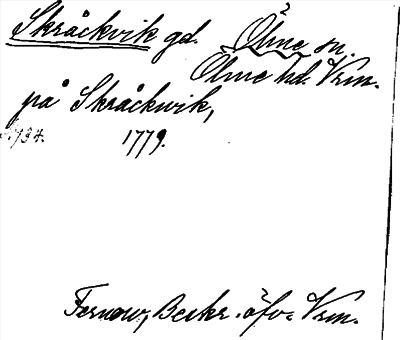 Skråckvik gd. Ölme sn.
Ölme hd. Vrm.
på Skråckwik,
s. 734. 1779.
Fernow, Beskr. öfv. Vrm.